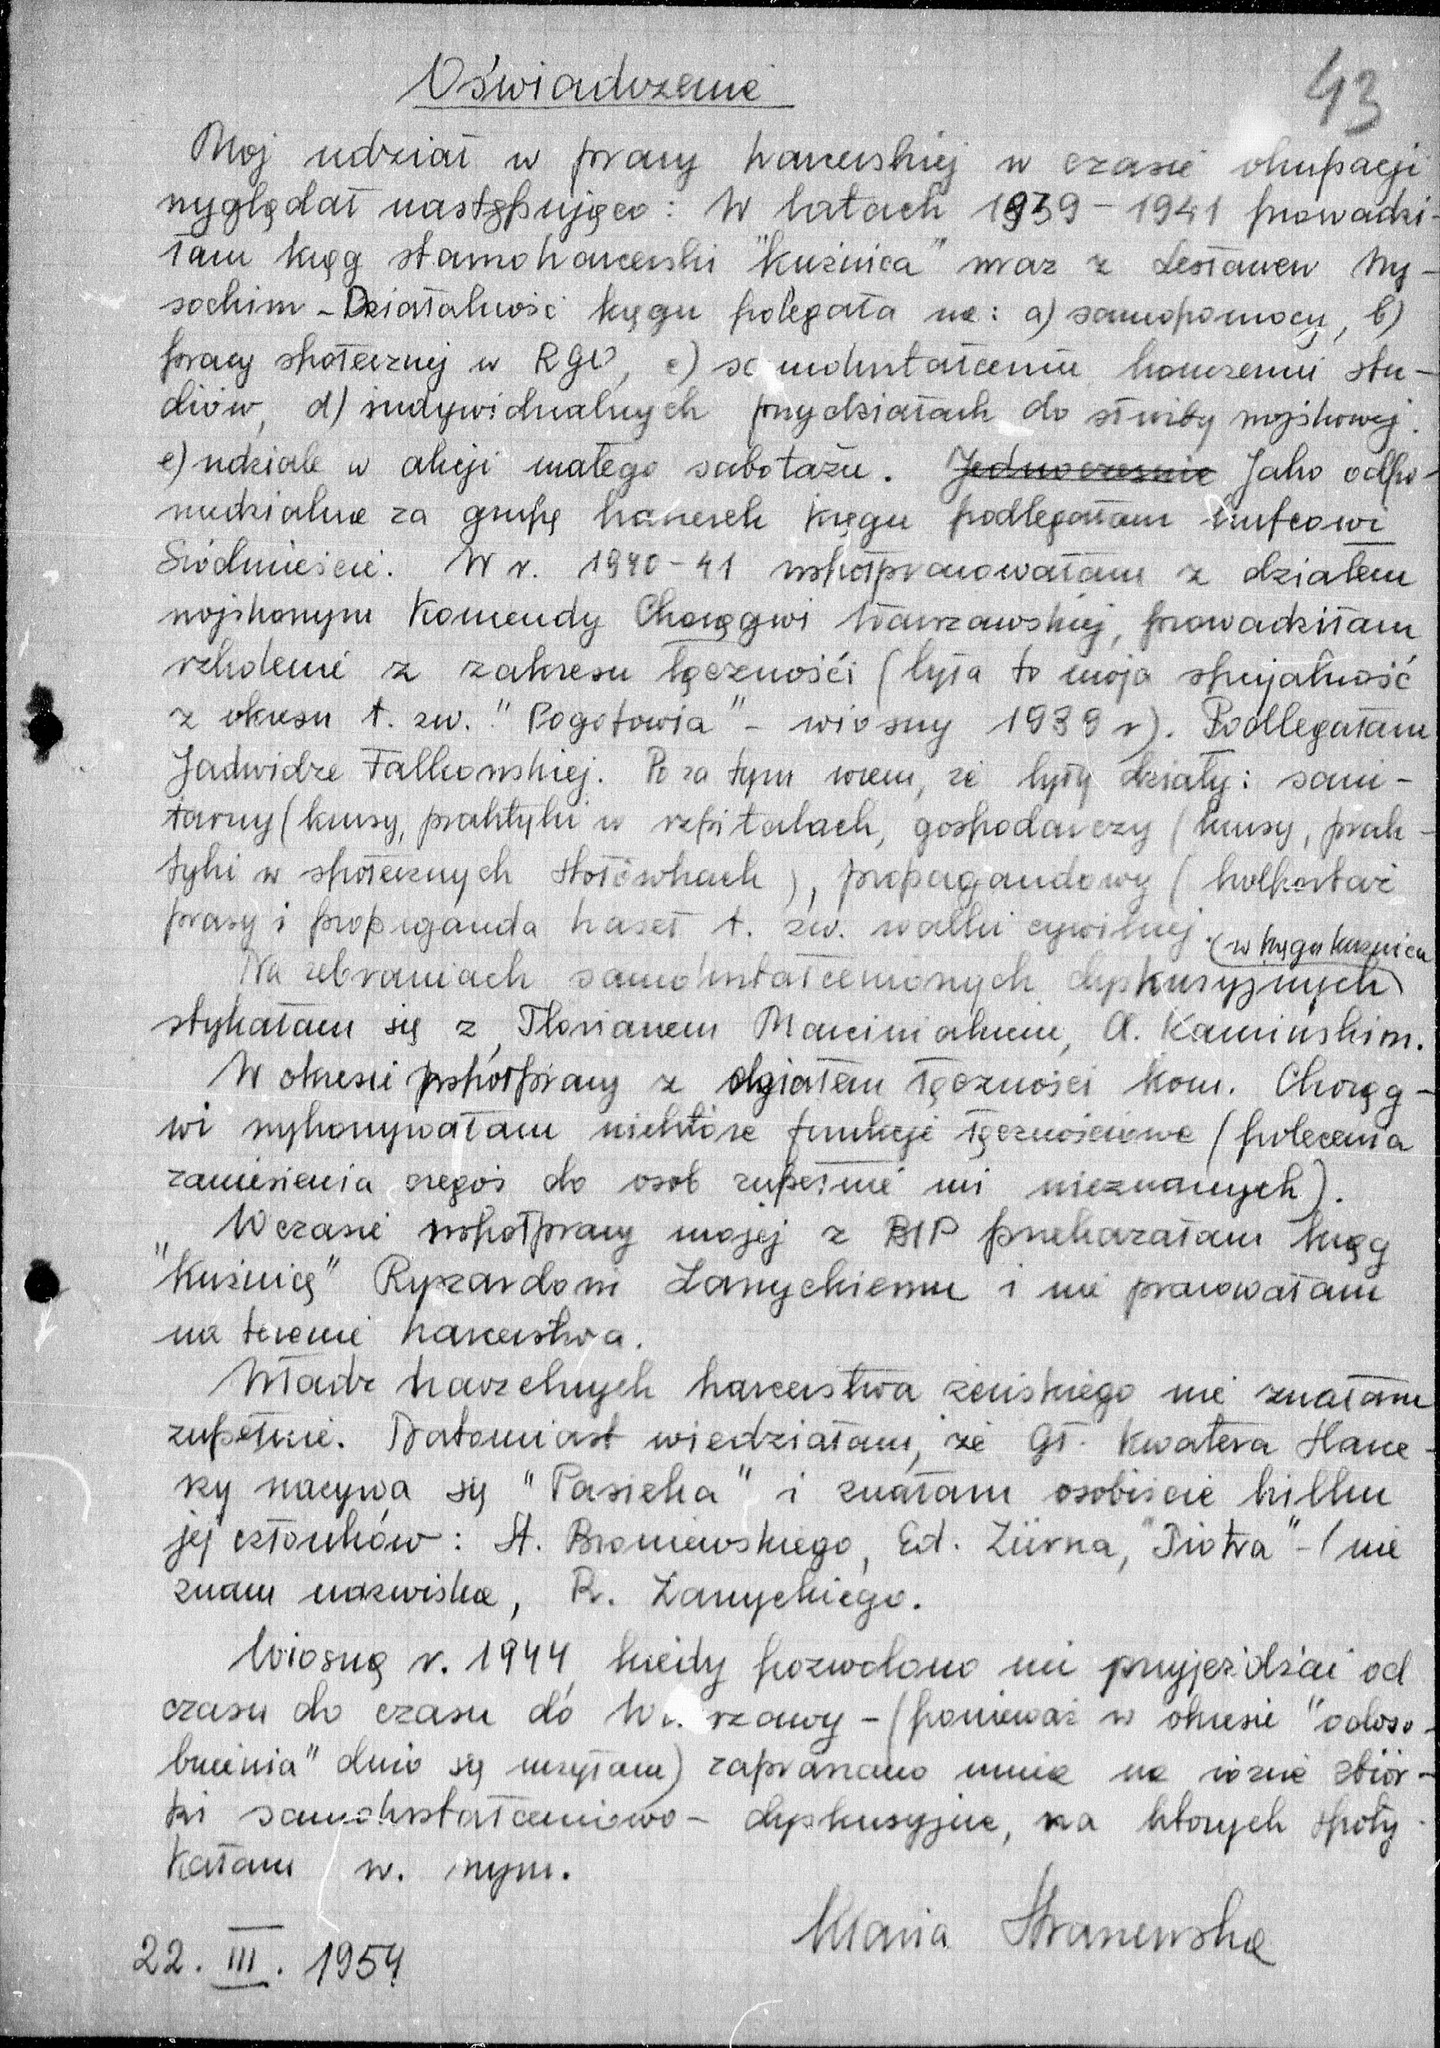 43
Oświadczenie
Moj udział w pracy harcerskiej w czasie okupacji
wyglądał następująco: W latach 1939 - 1941 prowadzi-
łam krąg starszoharcerski "Kuźnica" wraz z Lesławem Wy-
sockim - Działalność kręgu polegała na: a) samopomocy, b)
pracy społecznej w RGO, c) samokształceniu kończeniu stu-
diów, d) indywidualnych przydziałach do służby wojskowej.
e) udziale w akcji małego sabotażu. Jednocześnie Jako odpo-
wiedzialna za grupę harcerek kręgu podlegałam hufcowi
Śródmieście. W r. 1940 - 41 współpracowałam z działem
wojskowym Komendy Chorągwi Warszawskiej, prowadziłam
szkolenie z zakresu łączności (była to moja specjalność
z okresu t. zw. "Pogotowia" - wiosny 1939 r). Podlegałam
Jadwidze Falkowskiej. Poza tym wiem, że były działy: sani-
tarny (kursy, praktyki w szpitalach, gospodarczy (kursy, prak-
tyki w społecznych stołówkach), propagandowy (kolportaż
prasy i propaganda haseł t. zw. walki cywilnej.
(w kręgu kuźnica
Na zebraniach samokształceniowych dyskusyjnych)
stykałam się z Florianem Marciniakiem, A. Kamińskim.
W okresie współpracy z działem łączności Kom. Chorąg-
wi wykonywałam niektóre funkcje łącznościowe (polecenia
zaniesienia czegoś do osob zupełnie mi nieznanych).
W czasie współpracy mojej z BIP przekazałam krąg
"Kuźnicę" Ryszardowi Zarzyckiemu i nie pracowałam
na terenie harcerstwa.
Władz naczelnych harcerstwa żeńskiego nie znałam
zupełnie. Natomiast wiedziałam, że Gł. Kwatera Harce-
rzy nazywa się "Pasieka" i znałam osobiście kilku
jej członków: St. Broniewskiego, Ed. Zürna, "Piotra" - (nie
znam nazwiska, R. Zarzyckiego.
Wiosną r. 1944 kiedy pozwolono mi przyjeżdżać od
czasu do czasu do Warszawy - (ponieważ w okresie "odoso-
bnienia" dużo się uczyłam) zapraszano mnie na różne zbiór-
ki samokształceniowo - dyskusyjne, na ktorych spoty-
kałam w. wym.
Maria Straszewska
22. III. 1954